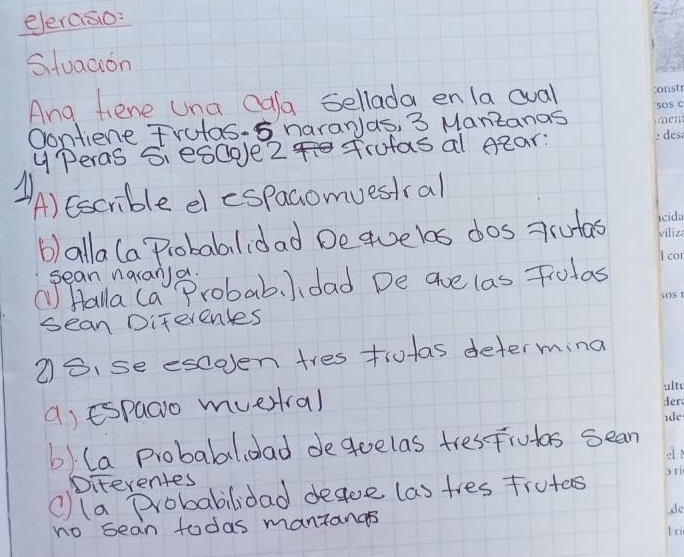 ejercisio:
Situación
Ana tiene una caja sellada en la cual
Contiene Frutas. 5 naranjas, 3 Manzanas
y Peras Si escoje 2 frutas al Azar:
1)
A) Escrible el espaciomuestral
b) alla la Probabilidad De que las dos Frutas
sean naranja.
c) Halla la Probabilidad De que las Frutas
sean Diferentes
2) Si se escojen tres frutas determina
a) Espacio muestral
b) la probabilidad de que las tres Frutas sean
Diferentes
c) la Probabilidad de que las tres Frutas
no sean todas manzanas
constr
sos c
acida
viliza
l cor
sos
ultu
der
ide
el
de